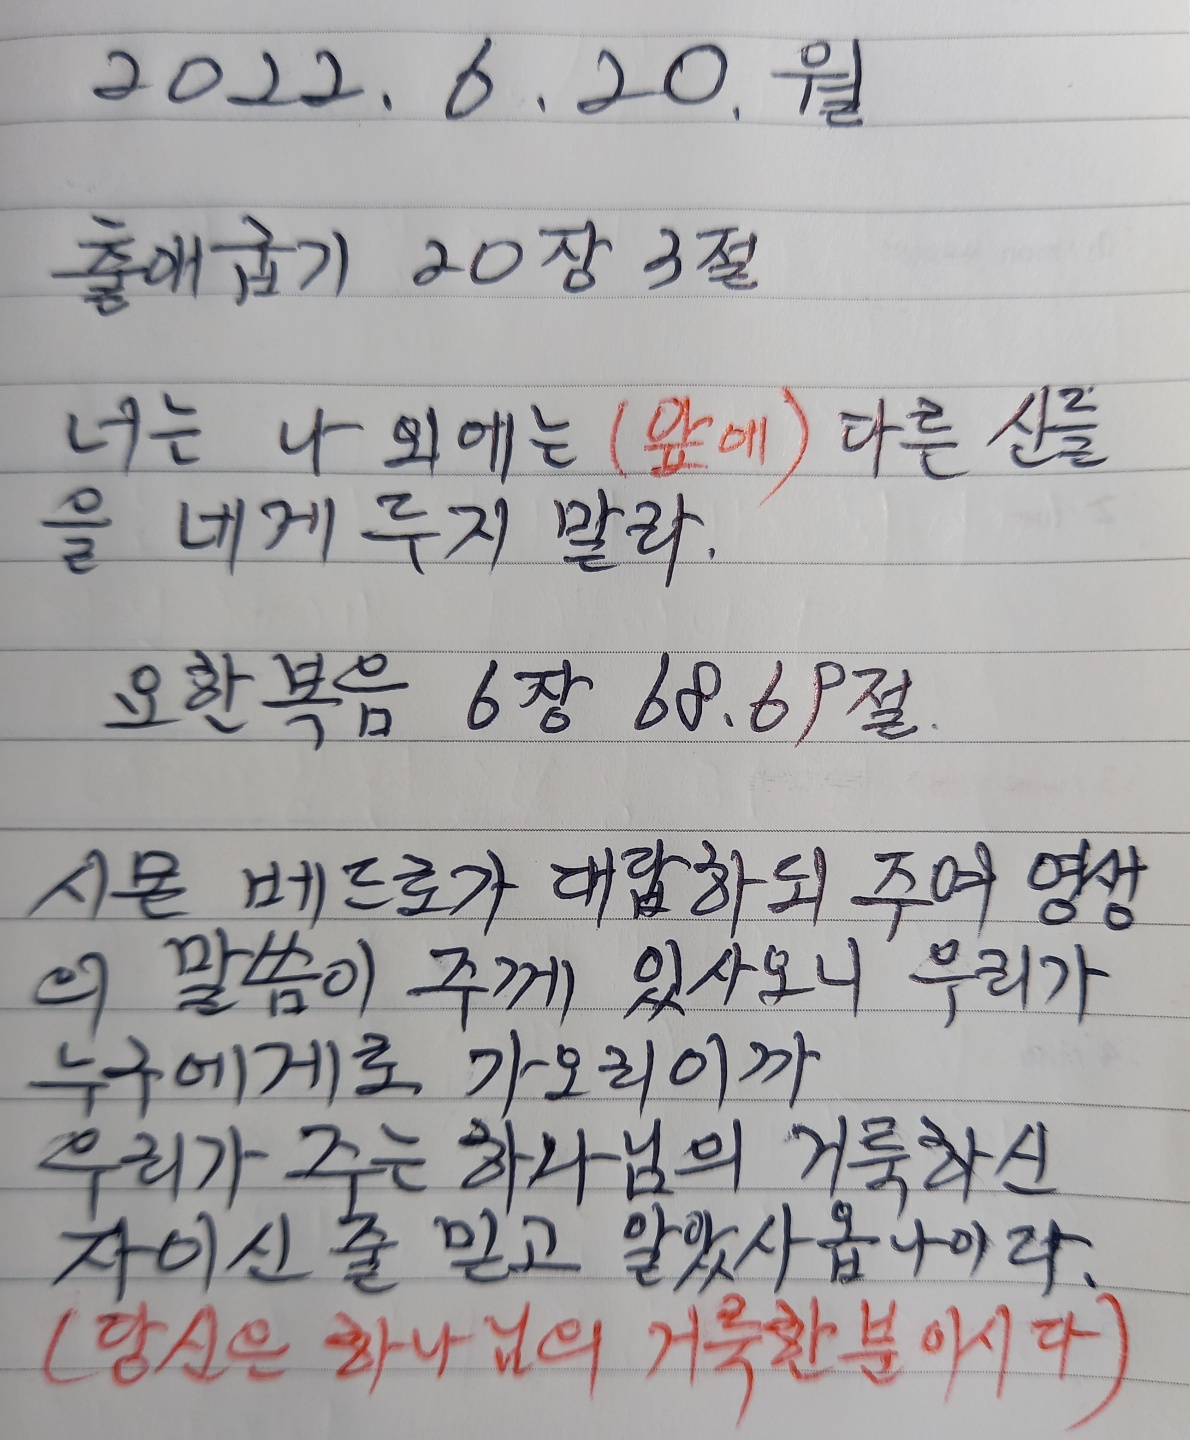 2022. 6. 20. 월
출애굽기 20장 3절
너는 나 외에는 (앞에) 다른 신들
을 네게 두지 말라.
요한복음 6장 68.69절.
시몬 베드로가 대답하되 주여 영생
의 말씀이 주께 있사오니 우리가
누구에게로 가오리이까
우리가 주는 하나님의 거룩하신
자이신 줄 믿고 알았사옵나이다.
(당신은 하나님의 거룩한 분이시다)